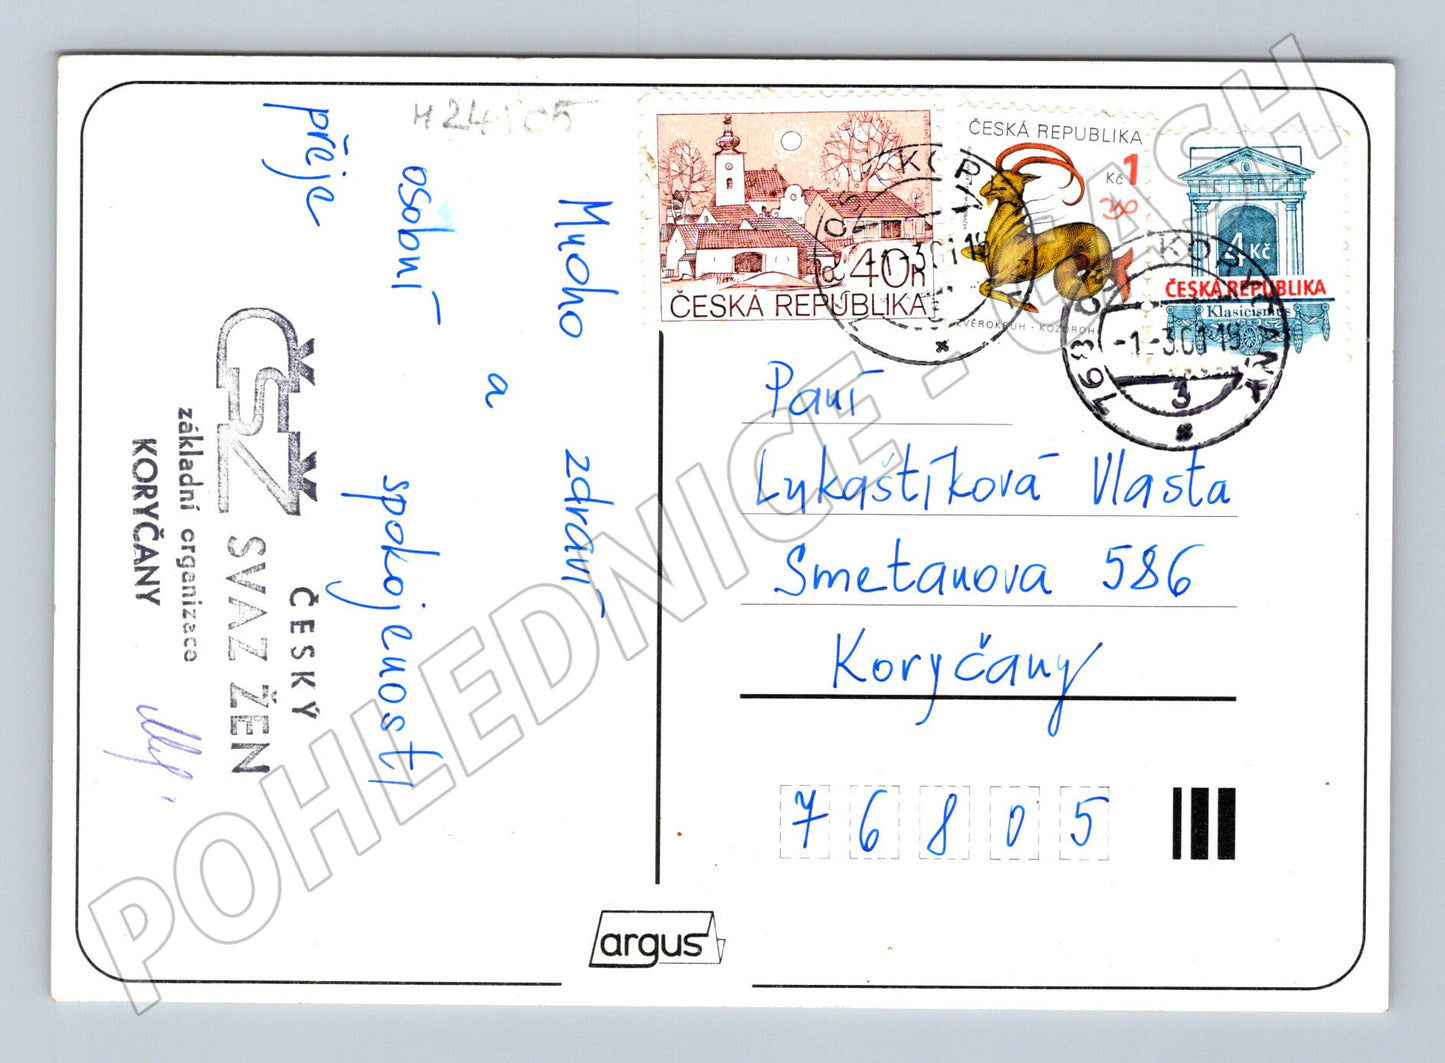 M24805
Mnoho zdraví
osobní a spokojenosti
přeje
ČESKÝ
SVAZ ŽEN
ČSŽ
základní organizace
KORYČANY
40h
ČESKÁ REPUBLIKA
ČESKÁ REPUBLIKA
Kč 1
ZVĚROKRUH - KOZOROH
4 Kč
ČESKÁ REPUBLIKA
Klasicismus
768 05 KORYČANY
-1.-3.01.19
3
768 05 KORYČANY
-1.-3.01.19
3
Paní
Lukaštíková Vlasta
Smetanova 586
Koryčany
7 6 8 0 5
argus
POHLEDNICE - CASH